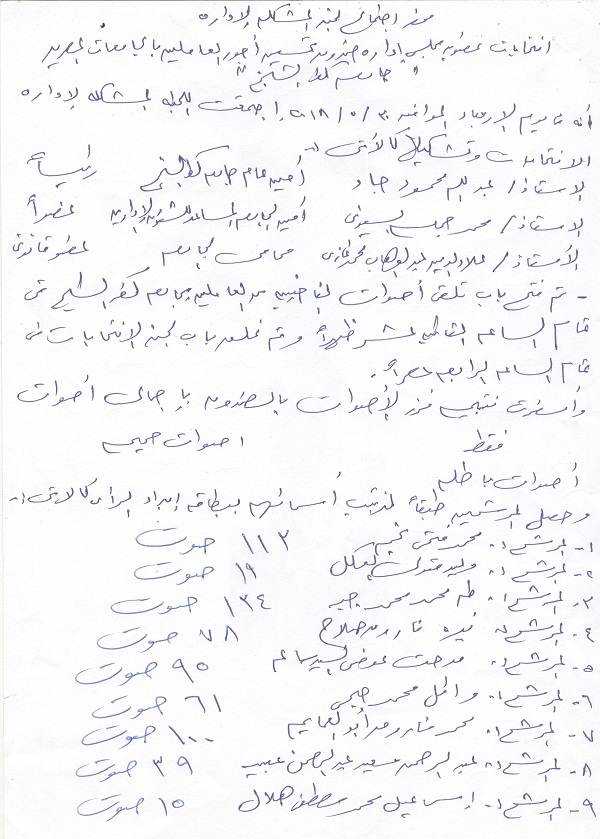 محضر اجتماع لجنة المشكلة لإدارة
انتخابات عضوية مجلس إدارة صندوق تحسين أجور العاملين بالجامعات المصرية
" جامعة كفر الشيخ "
أنه في يوم الاربعاء الموافق ٣٠ / ٥ / ٢٠١٨ اجتمعت اللجنة المشكلة لإدارة
الانتخابات وتشكيلها كالأتى :-
الاستاذ / عبد الله محمود جاد أمين عام جامعة كفر الشيخ رئيساً
الاستاذ / محمد السيوفى أمين الجامعة المساعد للشئون الإدارية عضواً
الأستاذ / علاء الدين عبد الوهاب محمد غازى محامى الجامعة عضو قانونى
- تم فتح باب تلقى أصوات الناخبين من العاملين بجامعة كفر الشيخ فى
تمام الساعة الثانية عشر ظهراً وتم غلق باب لجنة الانتخابات فى
تمام الساعة الرابعة عصراً .
وأسفرت نتيجة فرز الأصوات بالصندوق بإجمالى أصوات
فقط اصوات صحيحة
أصوات باطلة
وحصل المرشحين طبقاً لترتيب أسمائهم ببطاقة إبداء الرأى كالاتى :-
١- المرشح :- محمد فتحى ١١٢ صوت
٢- المرشح :- وليد ١٩ صوت
٣- المرشح :- طه محمد محمد ١٣٤ صوت
٤- المرشح :- فاروق صلاح ٧٨ صوت
٥- المرشح :- مدحت عوض السيد سالم ٩٥ صوت
٦- المرشح :- وائل محمد ٦١ صوت
٧- المرشح :- محمد أبو العمايم ١٠٠ صوت
٨- المرشح :- عبد الرحمن سعيد عبد الرحمن ٣٩ صوت
٩- المرشح :- إسماعيل محمد مصطفى هلال ١٥ صوت